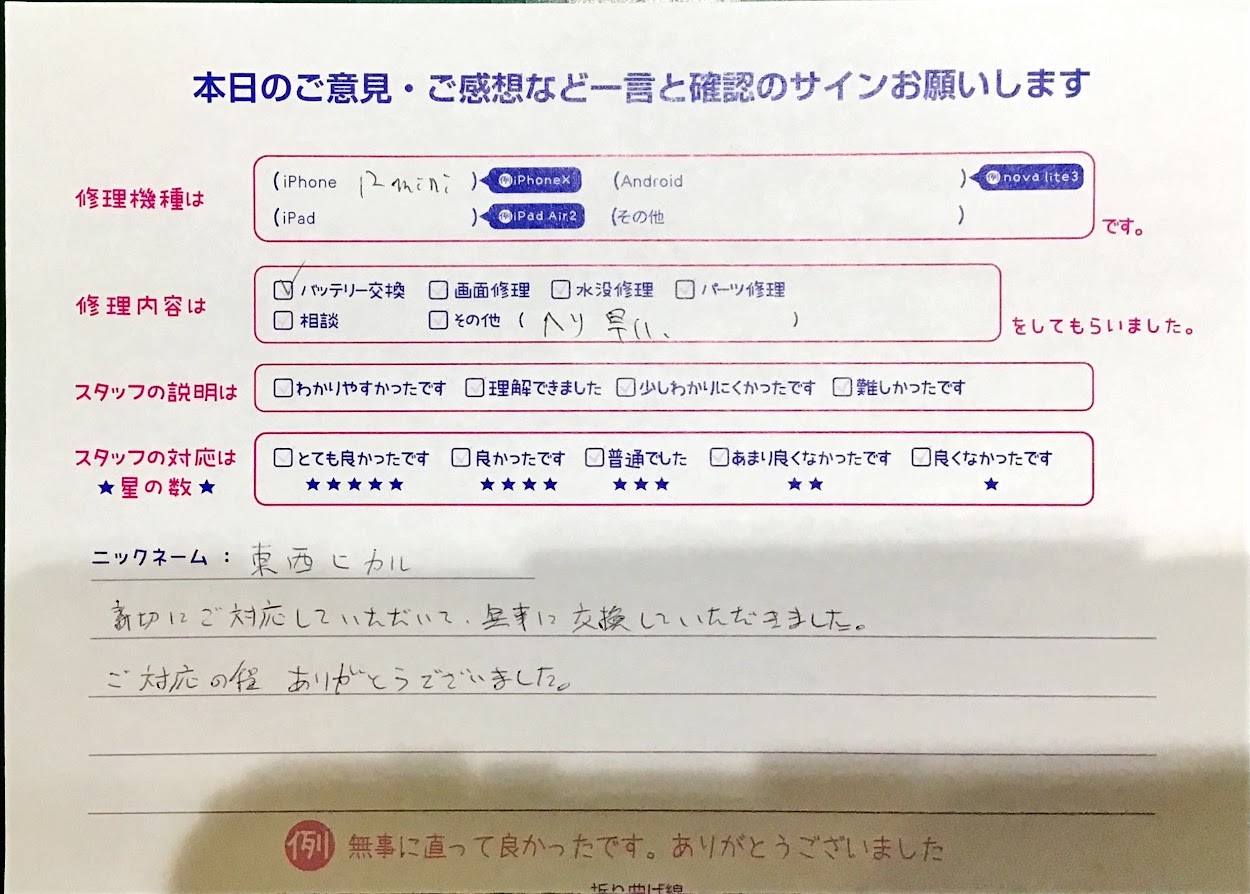 本日のご意見・ご感想など一言と確認のサインお願いします
修理機種は (iPhone 12 mini ) 例iPhoneX (Android ) 例nova lite3
(iPad ) 例iPad Air2 (その他 ) です。
修理内容は バッテリー交換 画面修理 水没修理 パーツ修理
相談 その他 ( ヘリ早い、 ) をしてもらいました。
スタッフの説明は わかりやすかったです 理解できました 少しわかりにくかったです 難しかったです
スタッフの対応は とても良かったです 良かったです 普通でした あまり良くなかったです 良くなかったです
★星の数★ ★★★★★ ★★★★ ★★★ ★★ ★
ニックネーム： 東西ヒカル
親切にご対応していただいて、無事に交換していただきました。
ご対応の程 ありがとうございました。
例 無事に直って良かったです。ありがとうございました
折り曲げ線